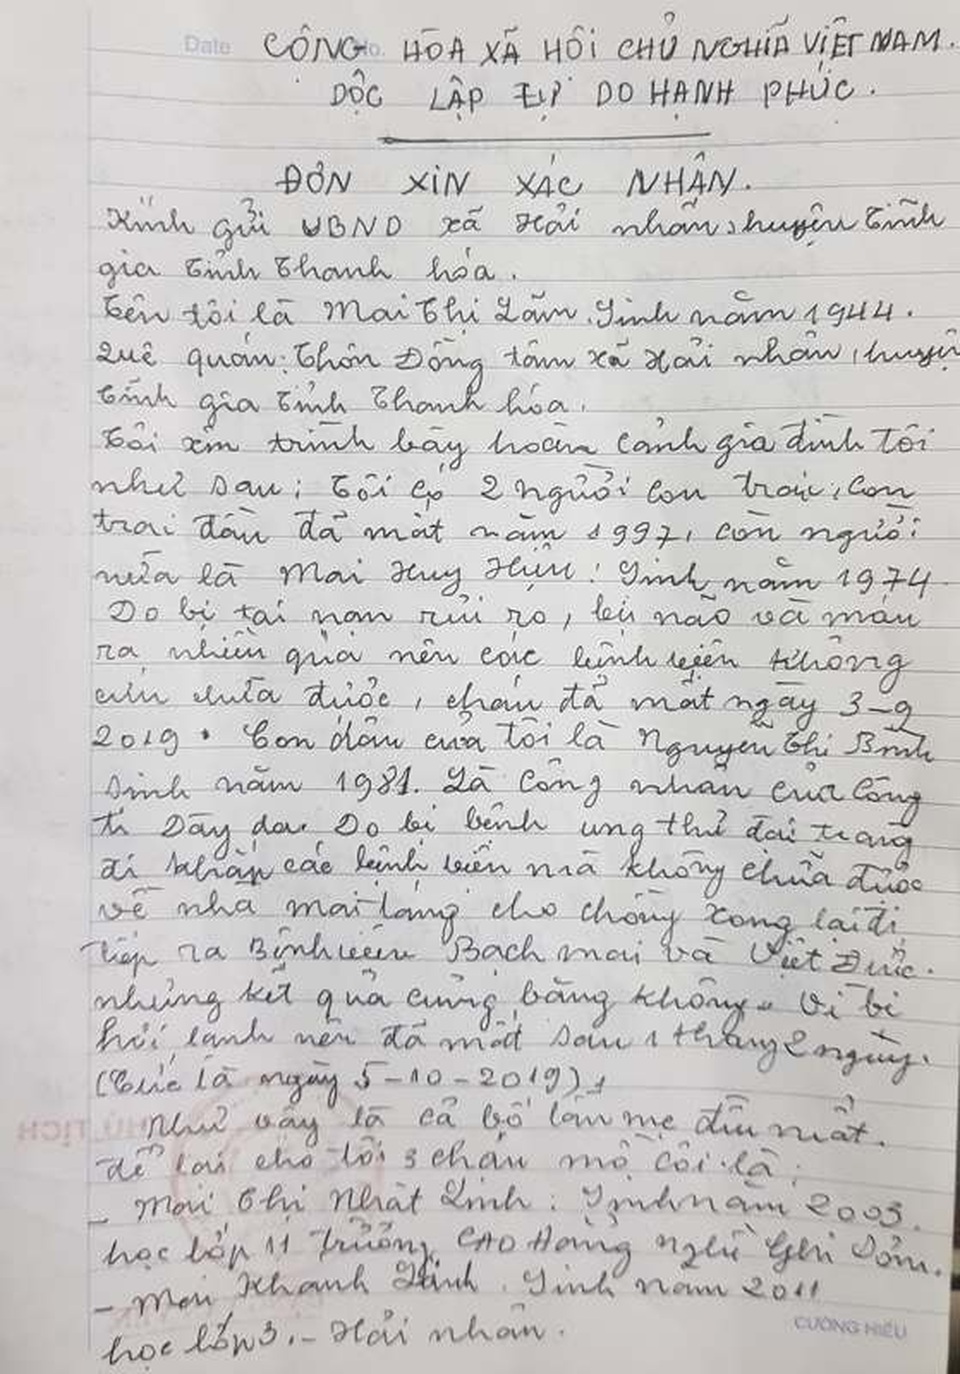 Date No.
CỘNG HÒA XÃ HÔI CHỦ NGHĨA VIỆT NAM.
DỘC LẬP TỰ DO HẠNH PHÚC.
ĐƠN XIN XÁC NHẬN.
Kính gửi UBND xã Hải nhân, huyện Tĩnh
gia Tỉnh Thanh hóa.
Tên tôi là Mai Thị Lãm. Sinh năm 1944.
Quê quán: Thôn Đồng tâm xã Hải nhân, huyện
Tĩnh gia Tỉnh Thanh hóa.
Tôi xin trình bầy hoàn cảnh gia đình Tôi
như sau; Tôi có 2 người con trai, con
trai đầu đã mất năm 1997, còn người
nữa là Mai Huy Hiệu! Sinh năm 1974
Do bị tai nạn rủi ro, bị não và máu
ra nhiều quá nên các bệnh viện không
cứu chữa được, cháu đã mất ngày 3-9
2019. Con dâu của tôi là Nguyễn Thị Bình
sinh năm 1981. Là công nhân của công
ti Dầy da. Do bị bệnh ung thư đại tràng
đi khắp các bệnh viện mà không chữa được
về nhà mai táng cho chồng xong lại đi
tiếp ra Bệnh viện Bạch mai và Việt Đức.
nhưng kết quả cũng bằng không. Vì bị
hơi lạnh nên đã mất sau 1 tháng 2 ngày.
(Tức là ngày 5-10-2019),
Như vậy là cả bố lẫn mẹ đều mất.
để lại cho tôi 3 cháu mồ côi là;
- Mai Thị Nhật Linh: Sinh năm 2003.
học lớp 11 Trường CAO Đẳng nghề Nghi Sơn.
- Mai Khanh Linh. Sinh năm 2011
học lớp 3. - Hải nhân.
CUONG HIEU
CHỦ TỊCH